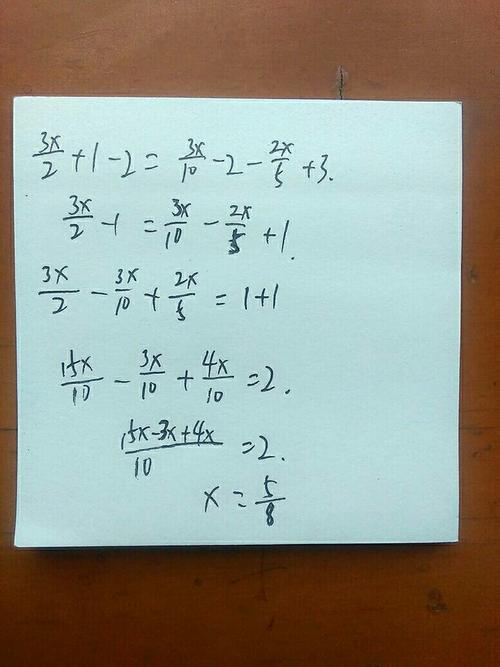 3x/2 + 1 - 2 = 3x/10 - 2 - 2x/5 + 3.
3x/2 - 1 = 3x/10 - 2x/5 + 1.
3x/2 - 3x/10 + 2x/5 = 1 + 1
15x/10 - 3x/10 + 4x/10 = 2.
15x-3x+4x/10 = 2.
x = 5/8